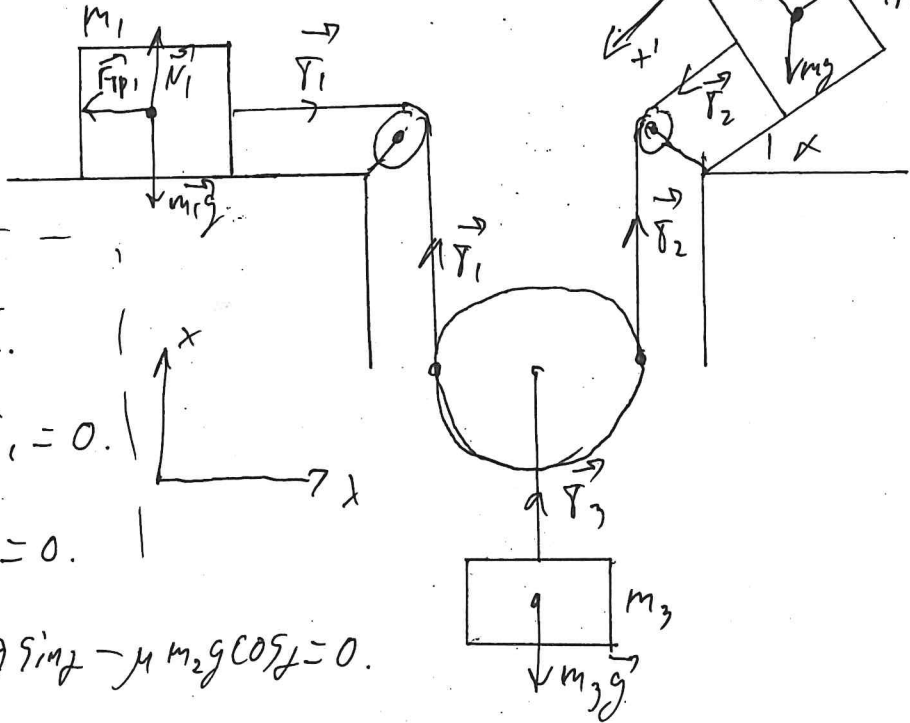 m₁
F⃗тр₁ N⃗₁ T⃗₁
m₁g⃗
T⃗₁
x' mg
T⃗₂
α
T⃗₂
x
x
₁ = 0.
= 0.
T⃗₃
m₃
m₃g⃗
sinα − μ m₂g cosα = 0.